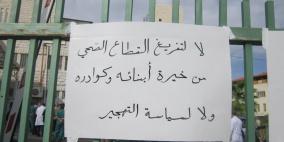 لا لتفريغ القطاع الصحي
من خيرة أبنائه وكوادره
ولا لسياسة التهجير